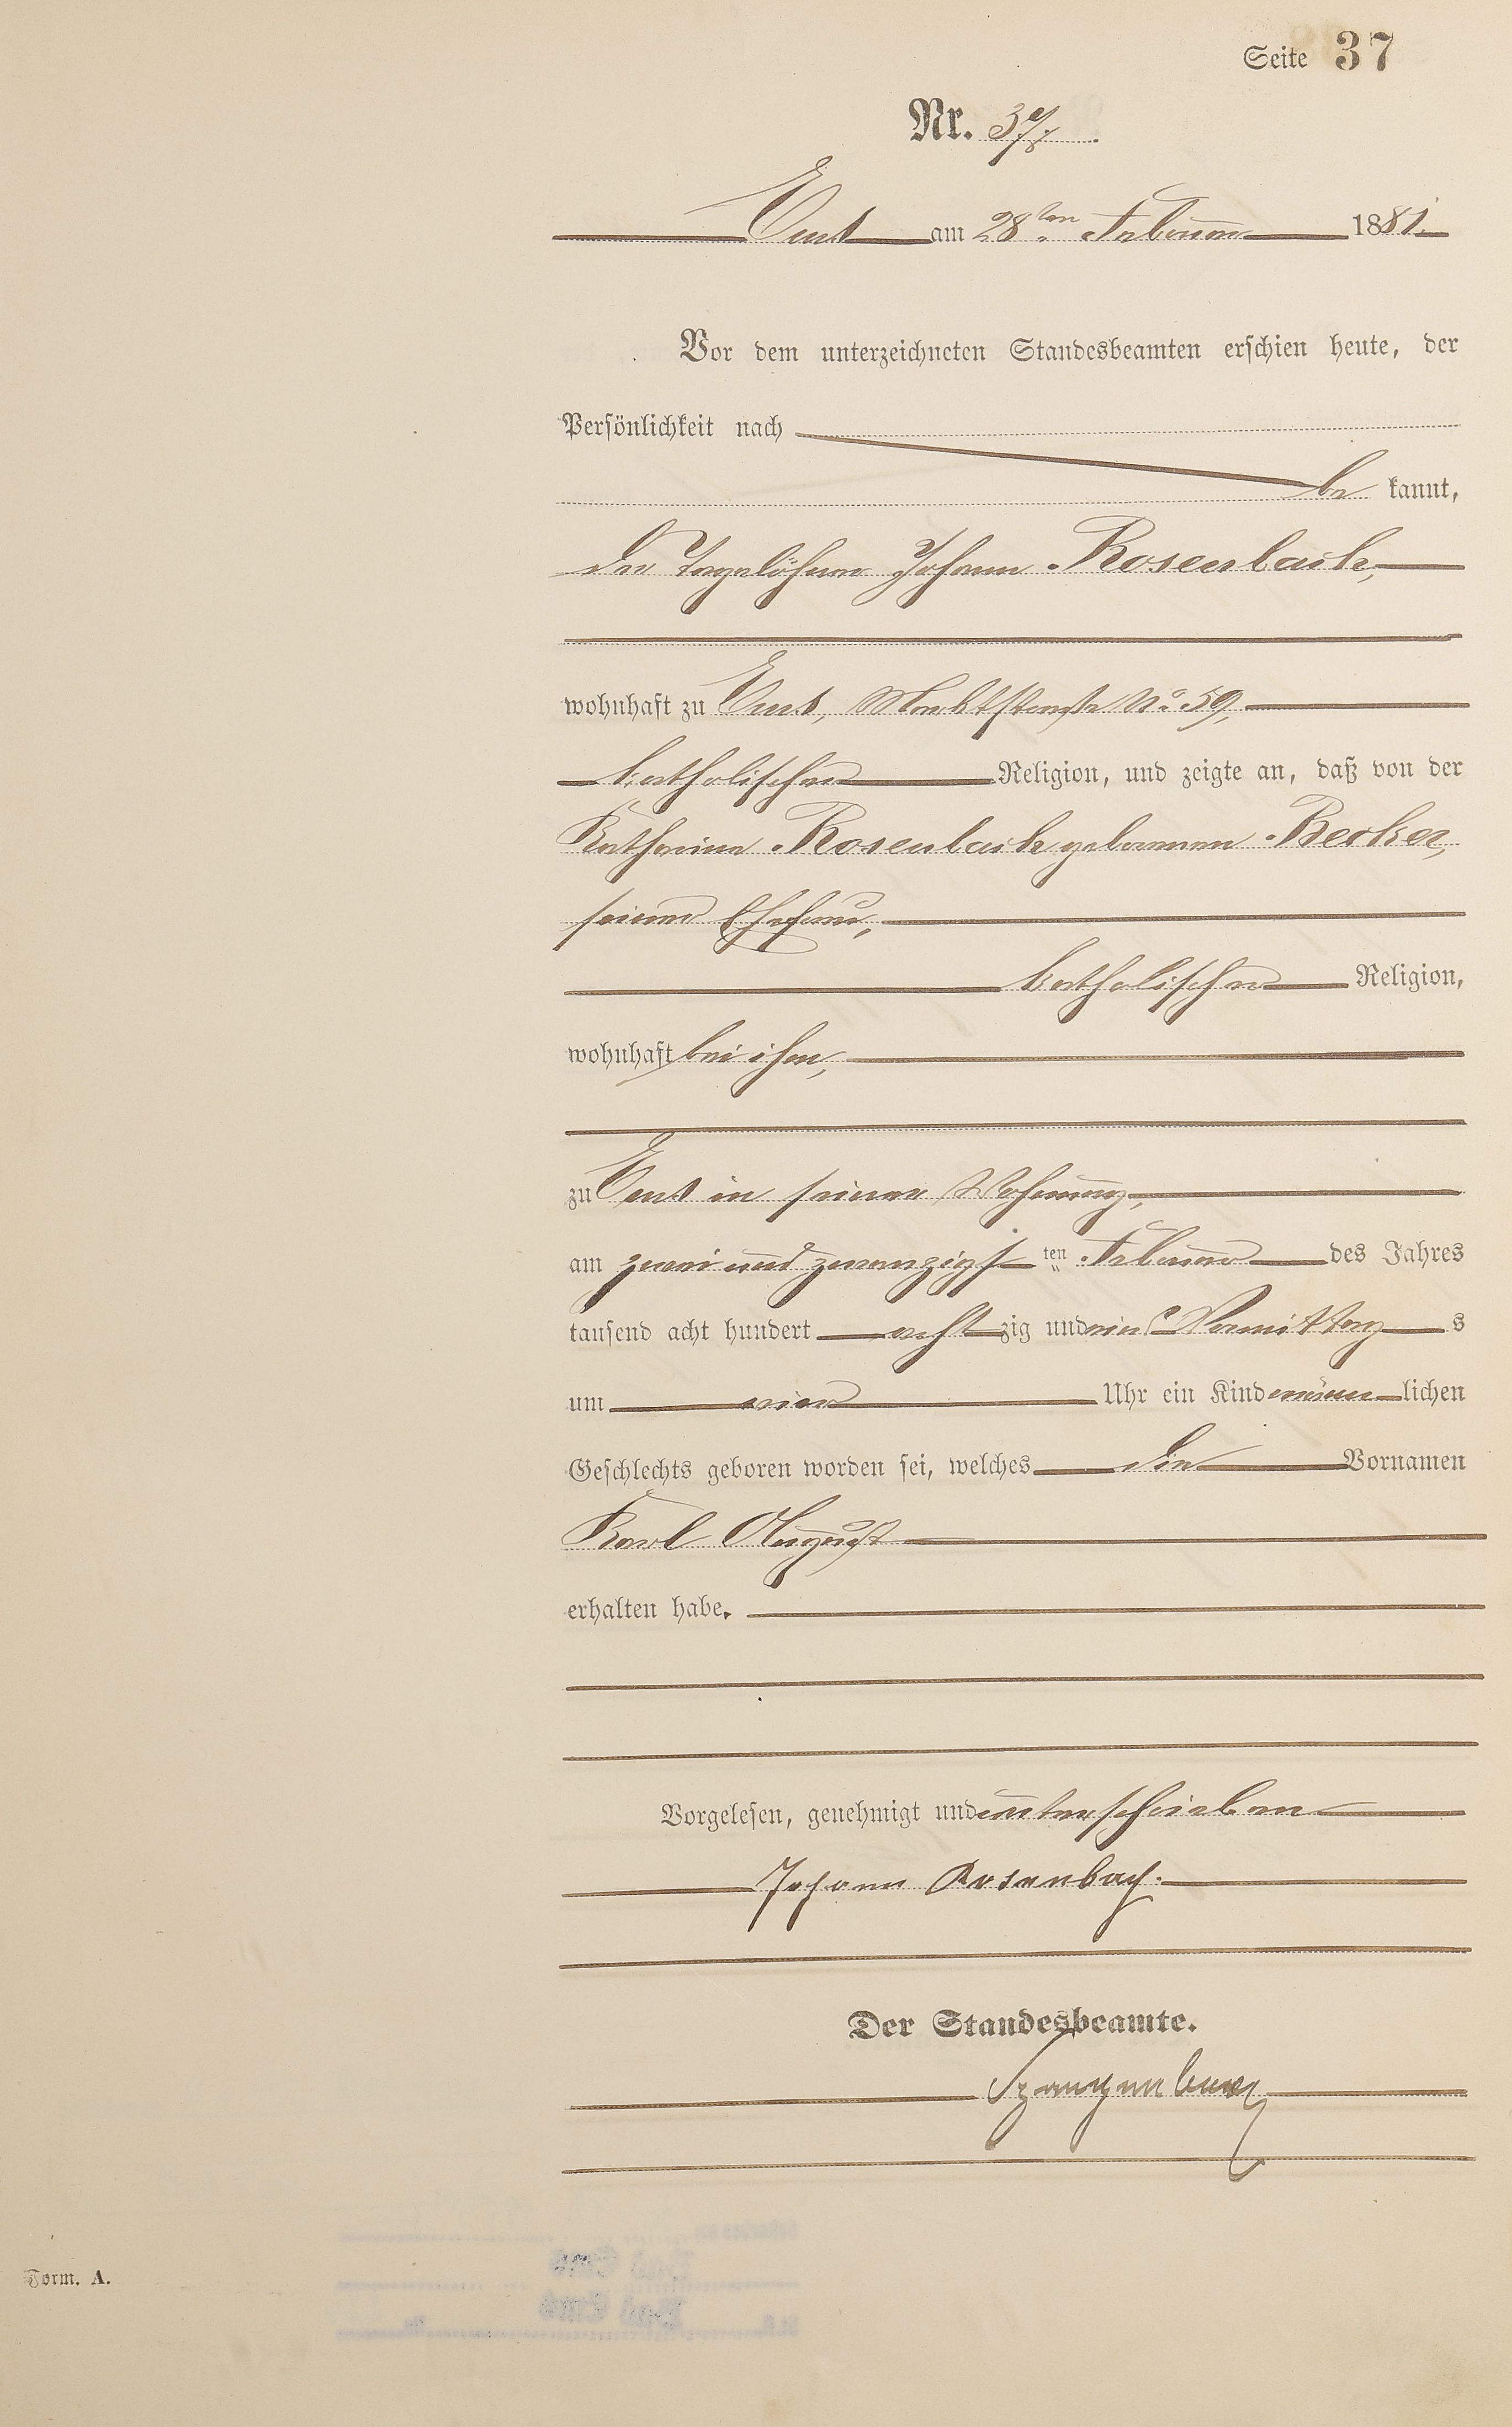 Seite 37
Nr. 37.
Ems am 28ten Februar 1881.
Vor dem unterzeichneten Standesbeamten erschien heute, der
Persönlichkeit nach
be kannt,
der Tagelöhner Johann Rosenbach,
wohnhaft zu Ems, Marktstraße No 59,
katholischer Religion, und zeigte an, daß von der
Katharina Rosenbach geborenen Becker,
seiner Ehefrau,
katholischer Religion,
wohnhaft bei ihm,
zu Ems in seiner Wohnung,
am zwei und zwanzigsten Februar des Jahres
tausend acht hundert acht zig und eins Vormittag s
um vier Uhr ein Kind männ lichen
Geschlechts geboren worden sei, welches die Vornamen
Karl August
erhalten habe.
Vorgelesen, genehmigt und unterschrieben
Johann Rosenbach.
Der Standesbeamte.
Spangenberg
Form. A.